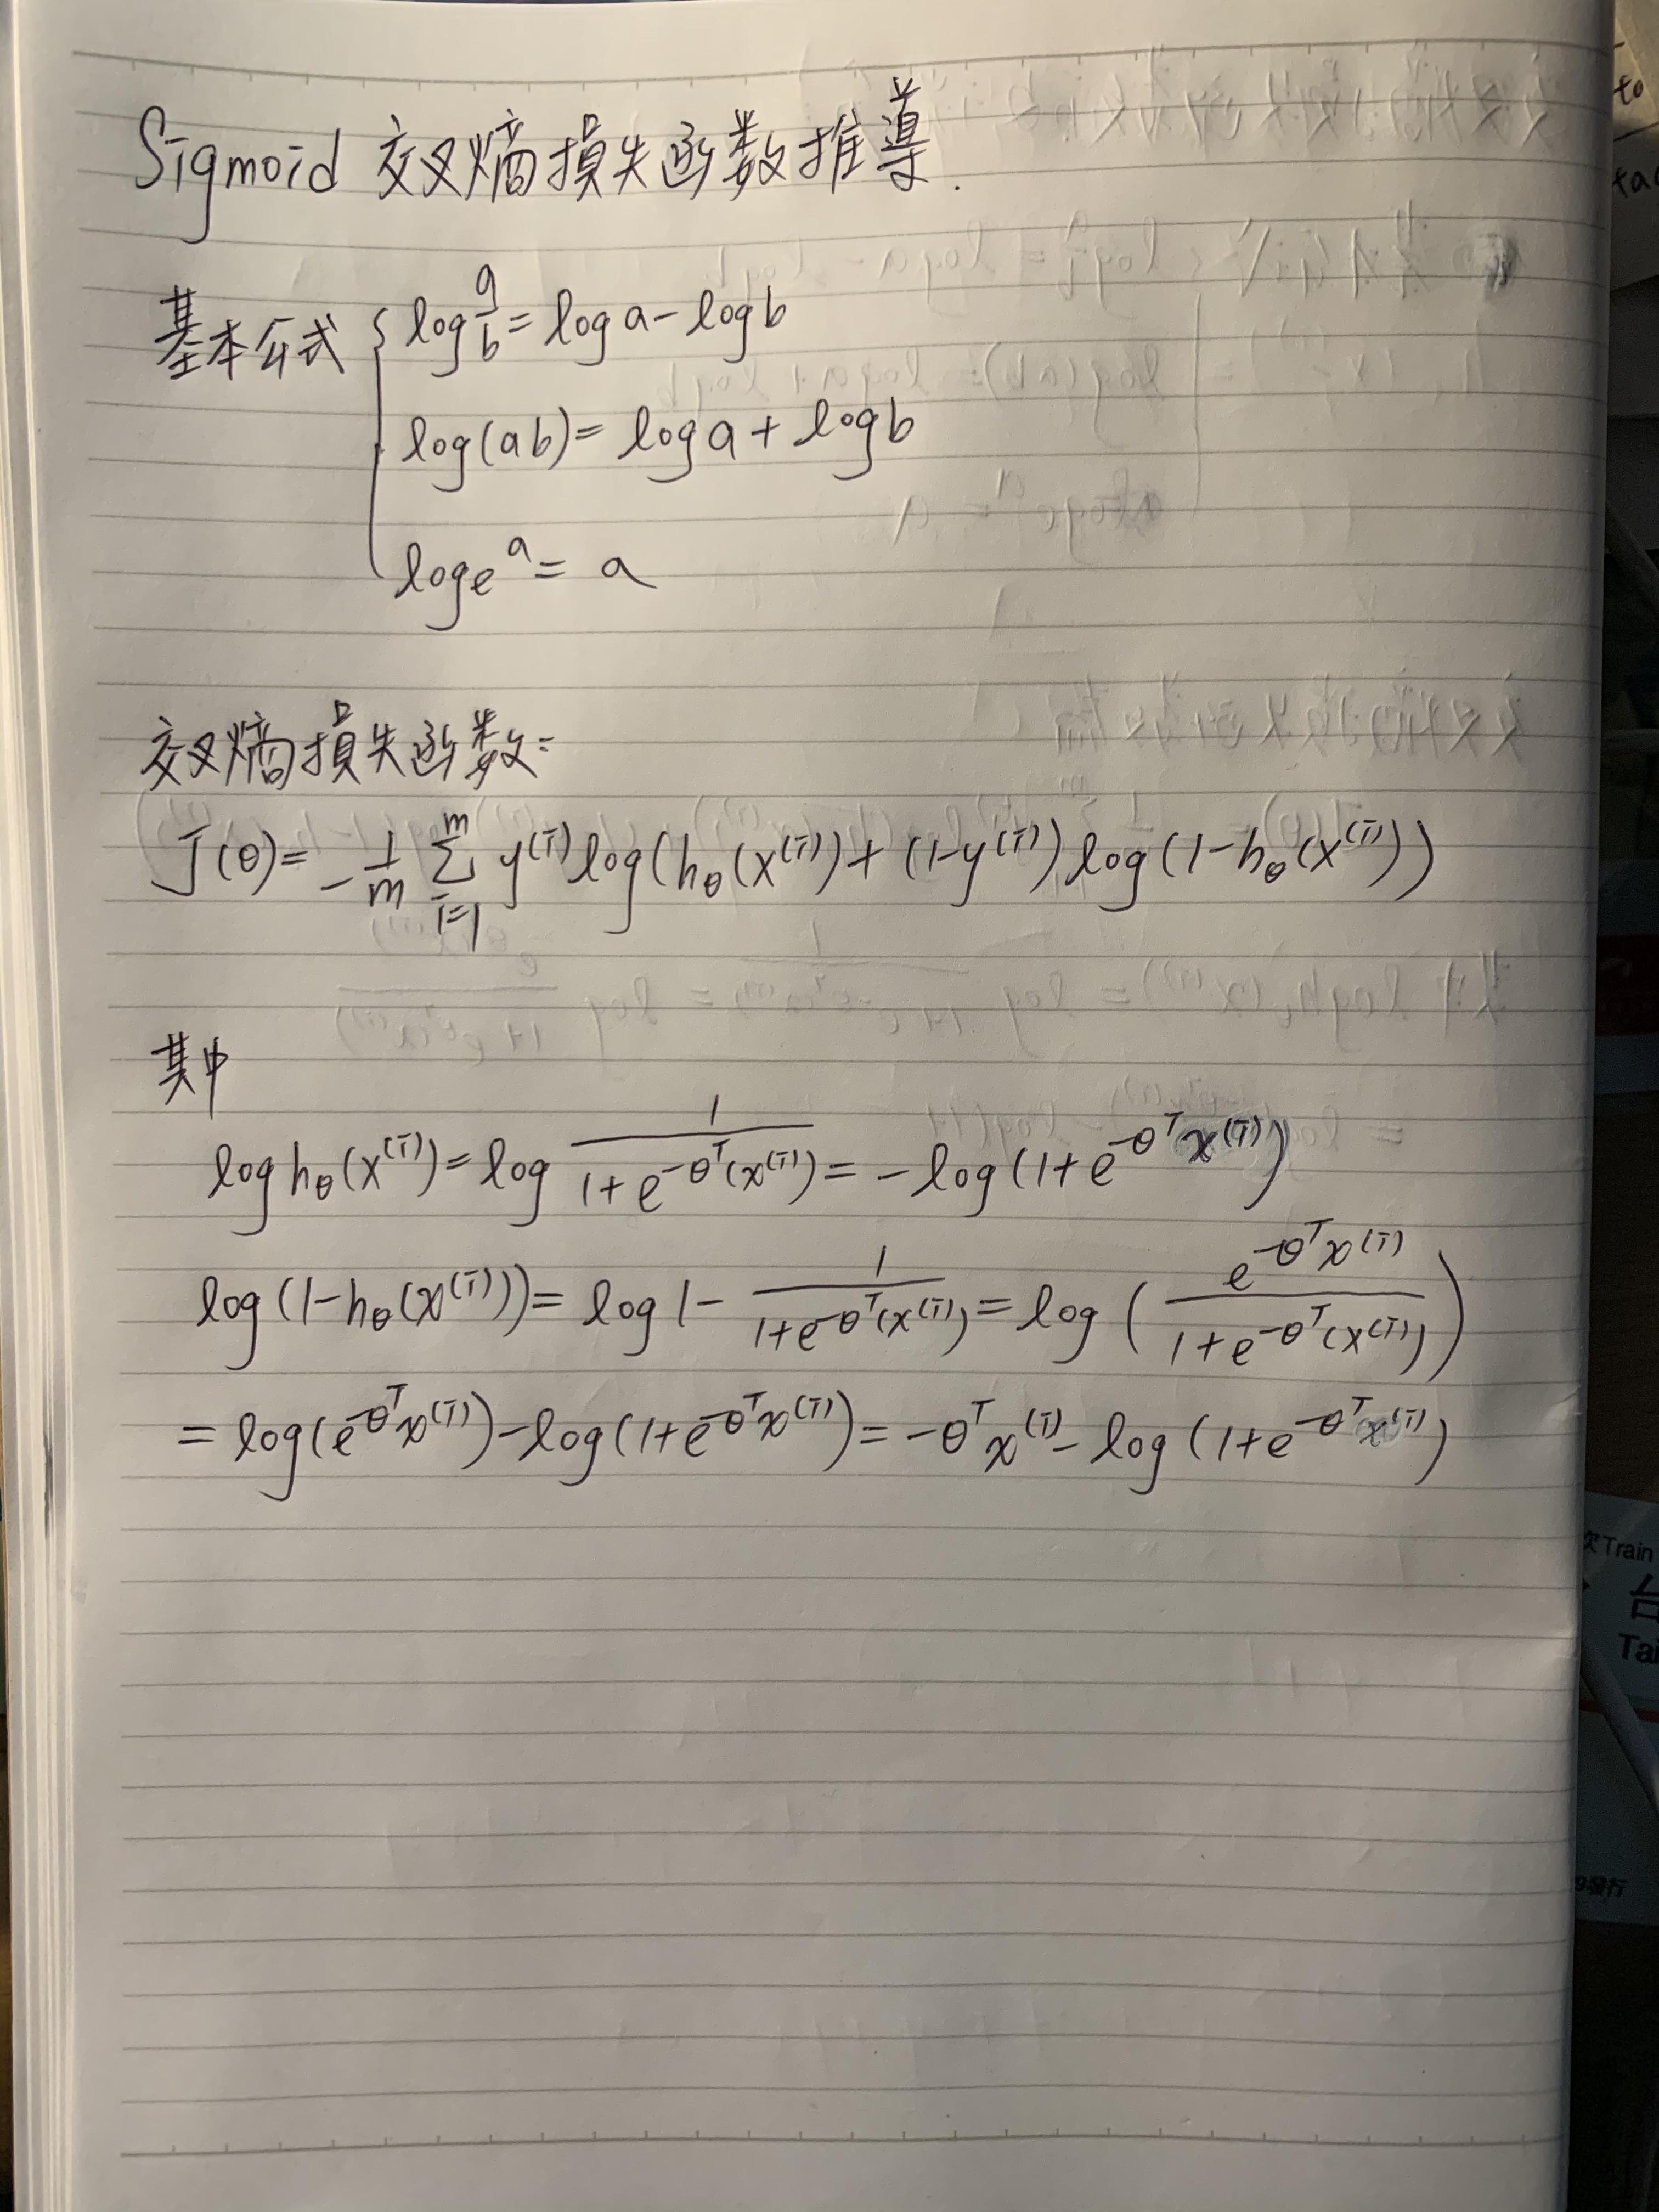 Sigmoid 交叉熵損失函数推導.
基本公式 { log a/b = log a - log b
log(ab) = log a + log b
log e^a = a
交叉熵損失函数:
J(θ) = -1/m Σ_{i=1}^{m} y^(i) log(h_θ(x^(i)) + (1-y^(i)) log(1-h_θ(x^(i)))
其中
log h_θ(x^(i)) = log 1/(1+e^{-θ^T(x^(i))}) = -log(1+e^{-θ^T x^(i)})
log(1-h_θ(x^(i))) = log 1 - 1/(1+e^{-θ^T(x^(i))}) = log(e^{-θ^T x^(i)}/(1+e^{-θ^T(x^(i))}))
= log(e^{-θ^T x^(i)}) - log(1+e^{-θ^T x^(i)}) = -θ^T x^(i) - log(1+e^{-θ^T x^(i)})
to
Train
Tai